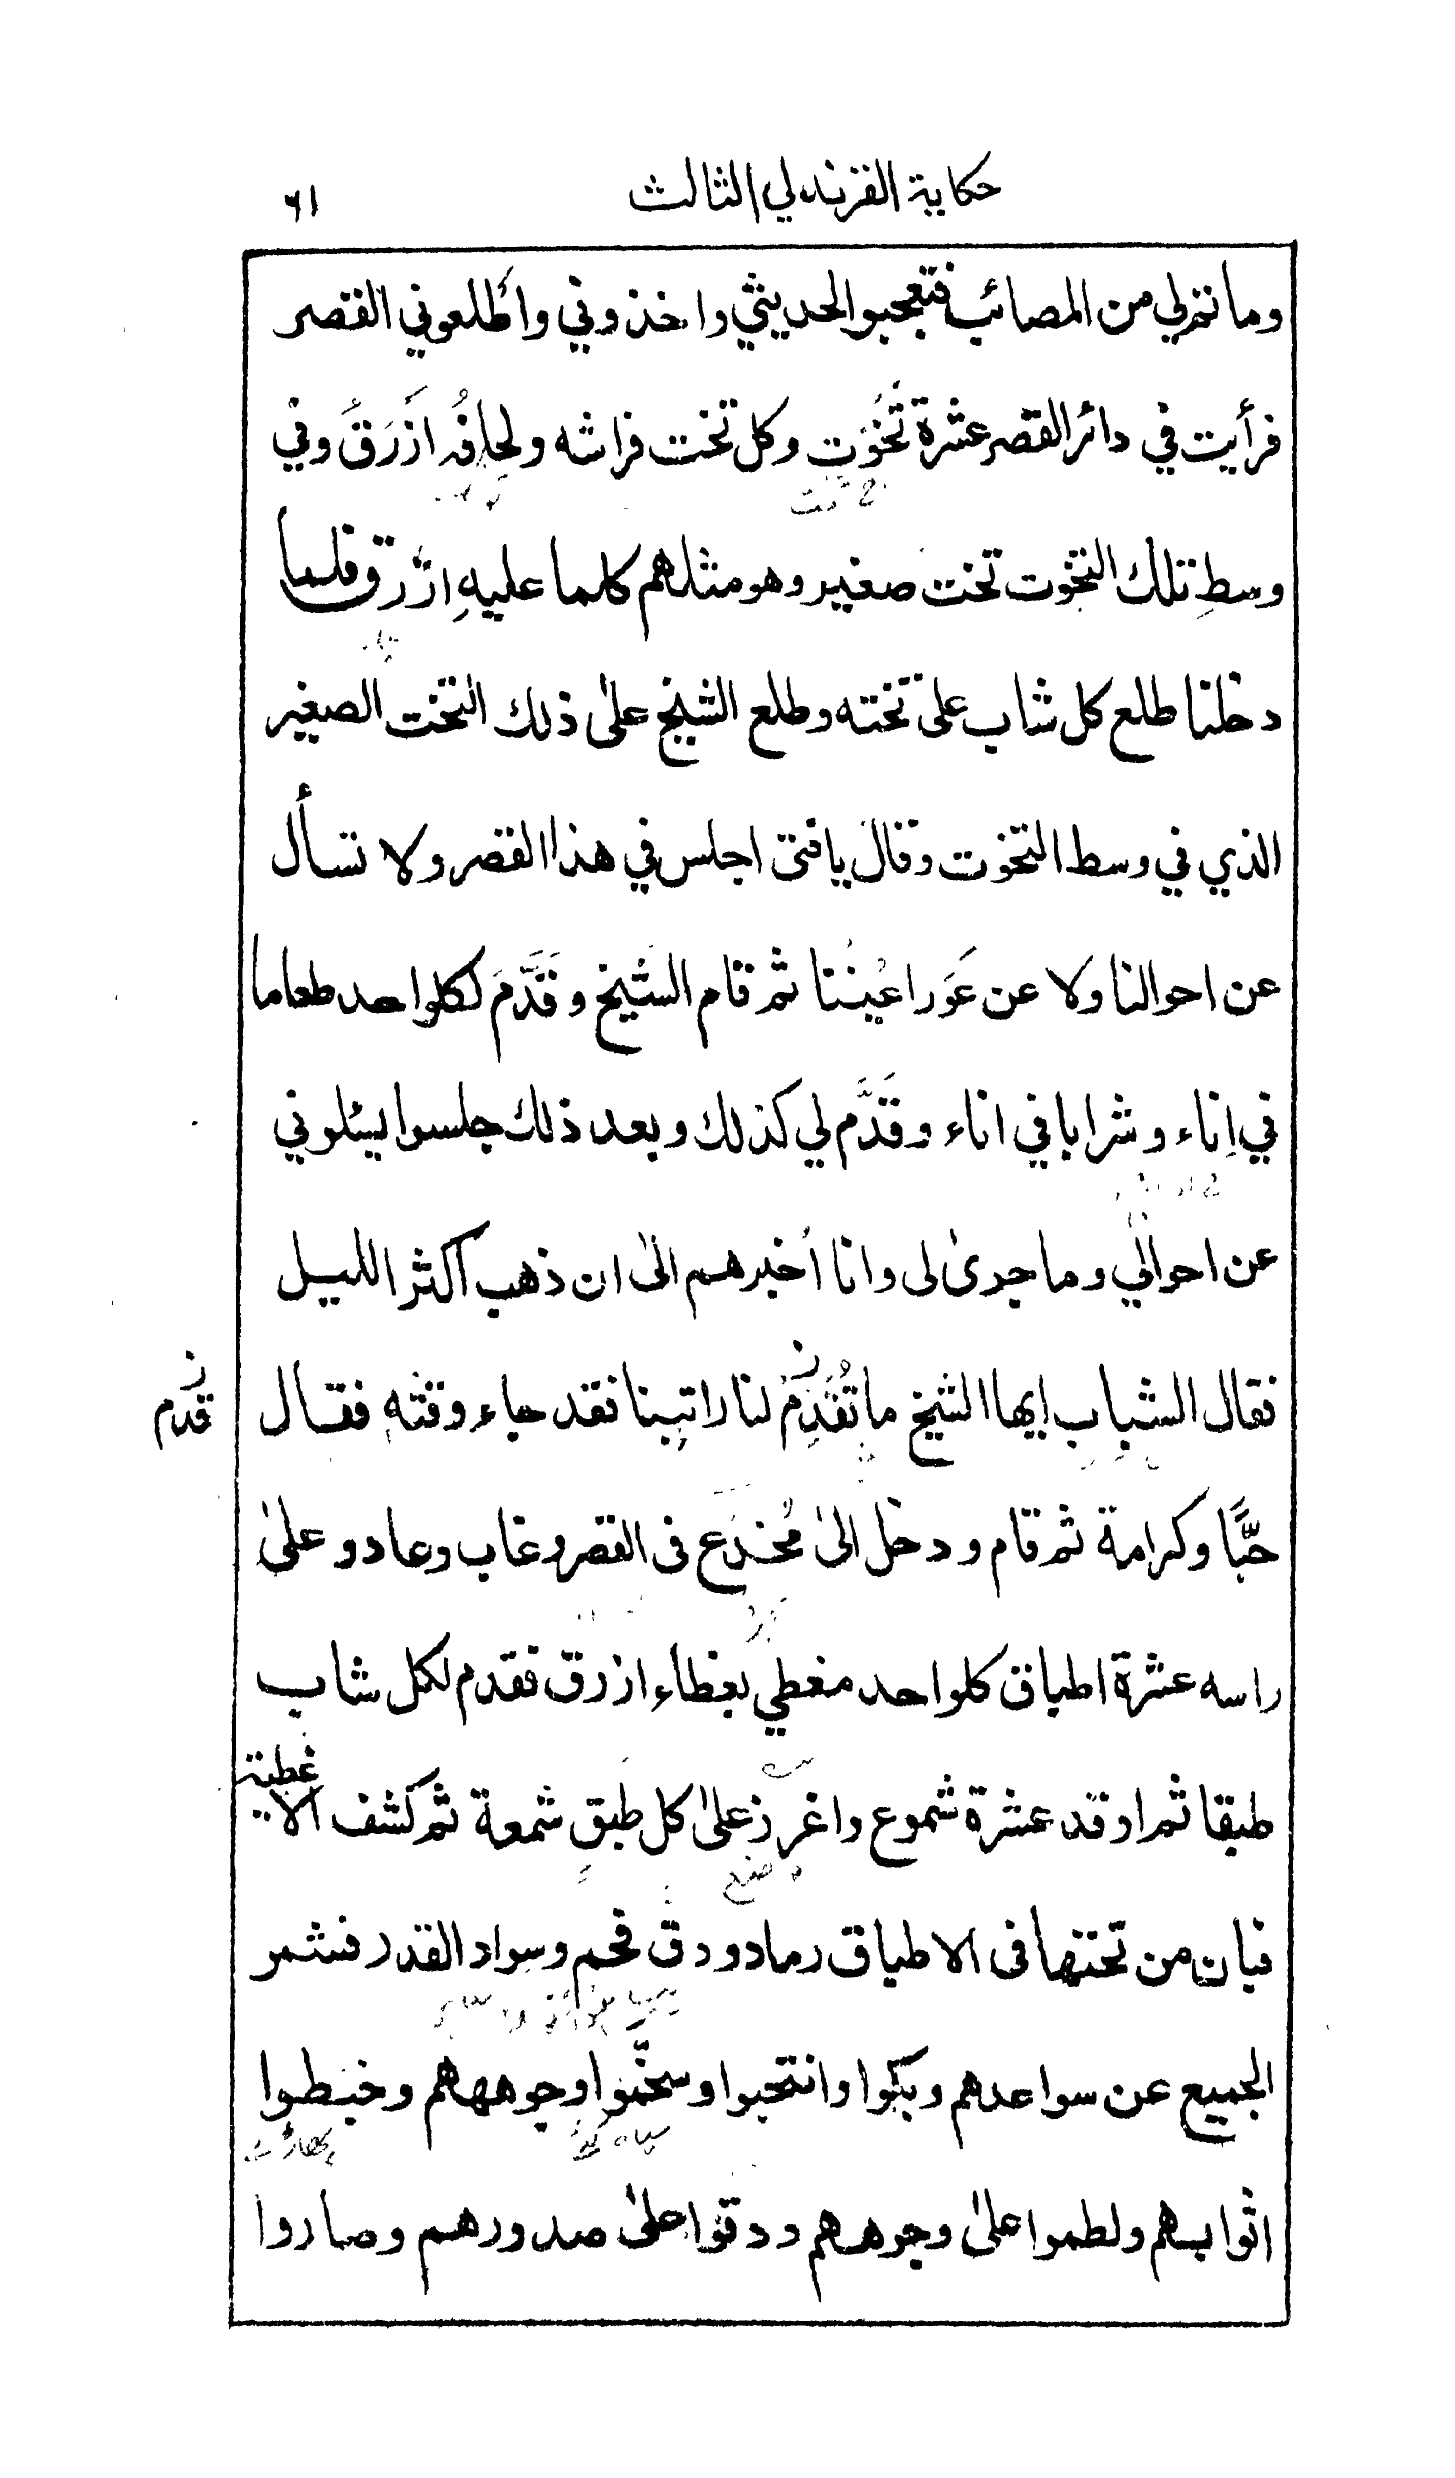 حكاية القرندلي الثالث ٦١
وما نتم لي من المصائب فتعجبوا لحديثي واخذوني واطلعوني القصر
فرأيت في دائر القصر عشرة تُخُوت وكل تخت فراشه ولحافُه ازرَقُ وفي
وسطِ تلك التخوت تخت صغير وهو مثلهم كلما عليهِ ازرق فلما
دخلنا طلع كل شاب على تخته وطلع الشيخ على ذلك التخت الصغير
الذي في وسط التخوت وقال يا فتى اجلس في هذا القصر ولا تسأل
عن احوالنا ولا عن عَوَر اعْيُنُنا ثم قام الشيخ وقَدَّمَ لكلواحد طعاما
في اِناء وشرابا في اناء وقَدَّم لي كذلك وبعد ذلك جلسوا يسئلوني
عن احوالي وما جرى لي وانا أخبرهم الى ان ذهب اكثر الليل
فقال الشباب ايها الشيخ ما تُقَدِّمُ لنا راتبنا فقد جاء وقته فقال
قدم
حبًّا وكرامة ثم قام ودخل الى مُخدَع في القصر وغاب وعاد و على
راسه عشرة اطباق كلواحد مغطي بغطاء ازرق فقدم لكل شاب
طبقا ثم اوقد عشرة شموع واغرز على كل طبقٍ شمعة ثم كشف الاغطية
فبان من تحتها في الاطباق رماد ودق فحم وسواد القدر فشمر
الجميع عن سواعدهم وبكوا وانتحبوا وسخّموا وجوههم وخبطوا
اثوابهم ولطموا على وجوههم ودقوا على صدورهم وصاروا